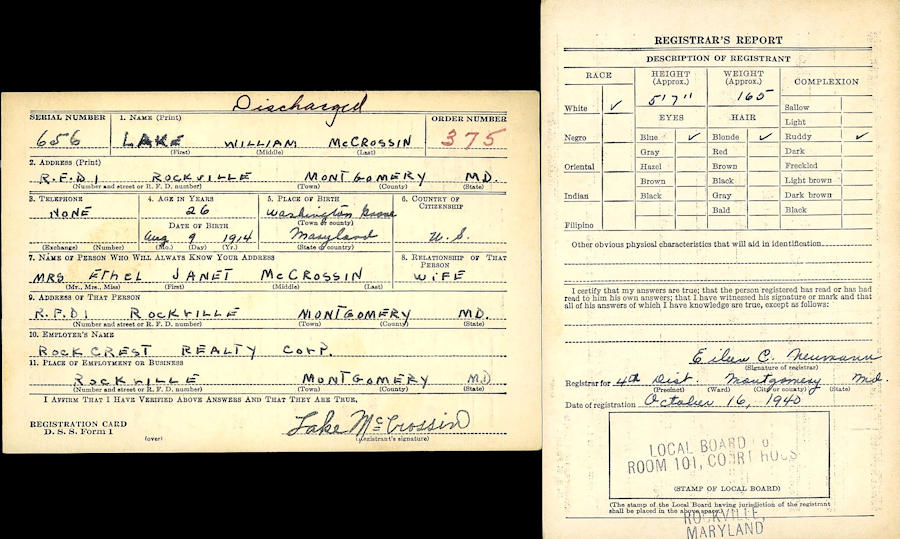 Discharged
SERIAL NUMBER 1. NAME (Print) ORDER NUMBER
656 LAKE WILLIAM McCROSSIN 375
(First) (Middle) (Last)
2. ADDRESS (Print)
R.F.D. 1 ROCKVILLE MONTGOMERY MD.
(Number and street or R. F. D. number) (Town) (County) (State)
3. TELEPHONE 4. AGE IN YEARS 5. PLACE OF BIRTH 6. COUNTRY OF CITIZENSHIP
NONE 26 Washington Grove
(Town or county)
DATE OF BIRTH
Aug 9 1914 Maryland U.S.
(Exchange) (Number) (Mo.) (Day) (Yr.) (State or country)
7. NAME OF PERSON WHO WILL ALWAYS KNOW YOUR ADDRESS 8. RELATIONSHIP OF THAT PERSON
MRS ETHEL JANET McCROSSIN WIFE
(Mr., Mrs., Miss) (First) (Middle) (Last)
9. ADDRESS OF THAT PERSON
R.F.D. 1 ROCKVILLE MONTGOMERY MD.
(Number and street or R. F. D. number) (Town) (County) (State)
10. EMPLOYER'S NAME
ROCKCREST REALTY CORP.
11. PLACE OF EMPLOYMENT OR BUSINESS
ROCKVILLE MONTGOMERY MD
(Number and street or R. F. D. number) (Town) (County) (State)
I AFFIRM THAT I HAVE VERIFIED ABOVE ANSWERS AND THAT THEY ARE TRUE.
REGISTRATION CARD
D. S. S. Form 1 Lake McCrossin
(over) (Registrant's signature)
REGISTRAR'S REPORT
DESCRIPTION OF REGISTRANT
RACE HEIGHT (Approx.) WEIGHT (Approx.) COMPLEXION
White ✓ 5'7" 165 Sallow
EYES HAIR Light
Negro Blue ✓ Blonde ✓ Ruddy ✓
Gray Red Dark
Oriental Hazel Brown Freckled
Brown Black Light brown
Indian Black Gray Dark brown
Bald Black
Filipino
Other obvious physical characteristics that will aid in identification
I certify that my answers are true; that the person registered has read or has had
read to him his own answers; that I have witnessed his signature or mark and that
all of his answers of which I have knowledge are true, except as follows:
Eileen C. Neumann
(Signature of registrar)
Registrar for 4th Dist. Montgomery Md.
(Precinct) (Ward) (City or county) (State)
Date of registration October 16, 1940
LOCAL BOARD
ROOM 101, COURT HOUS
(STAMP OF LOCAL BOARD)
(The stamp of the Local Board having jurisdiction of the registrant
shall be placed in the above space.)
ROCKVILLE,
MARYLAND